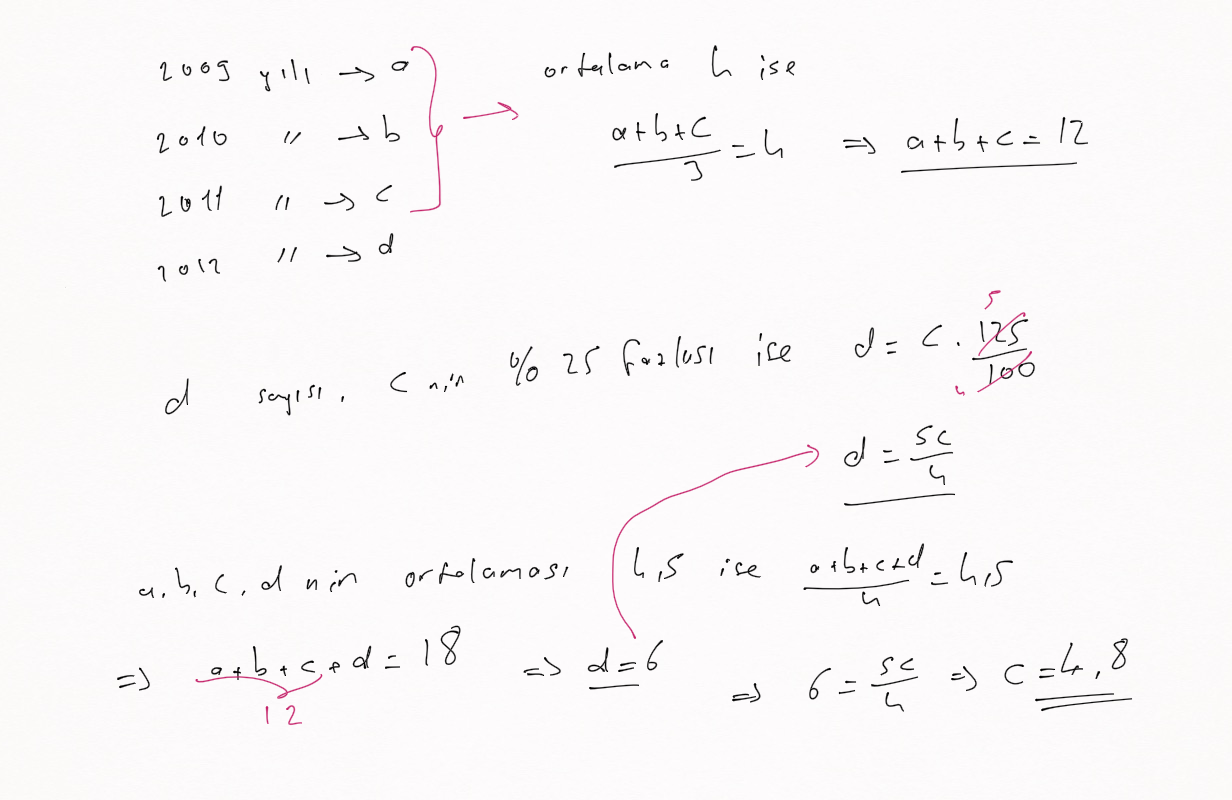 2009 yılı → a
2010 " → b
2011 " → c
2012 " → d
→ ortalama 4 ise
a+b+c / 3 = 4 ⇒ a+b+c = 12
d sayısı, c nin % 25 fazlası ise d = c . 125/100
5
4
d = 5c/4
a, b, c, d nin ortalaması 4,5 ise a+b+c+d / 4 = 4,5
⇒ a+b+c+d = 18 ⇒ d=6 ⇒ 6 = 5c/4 ⇒ c = 4,8
12